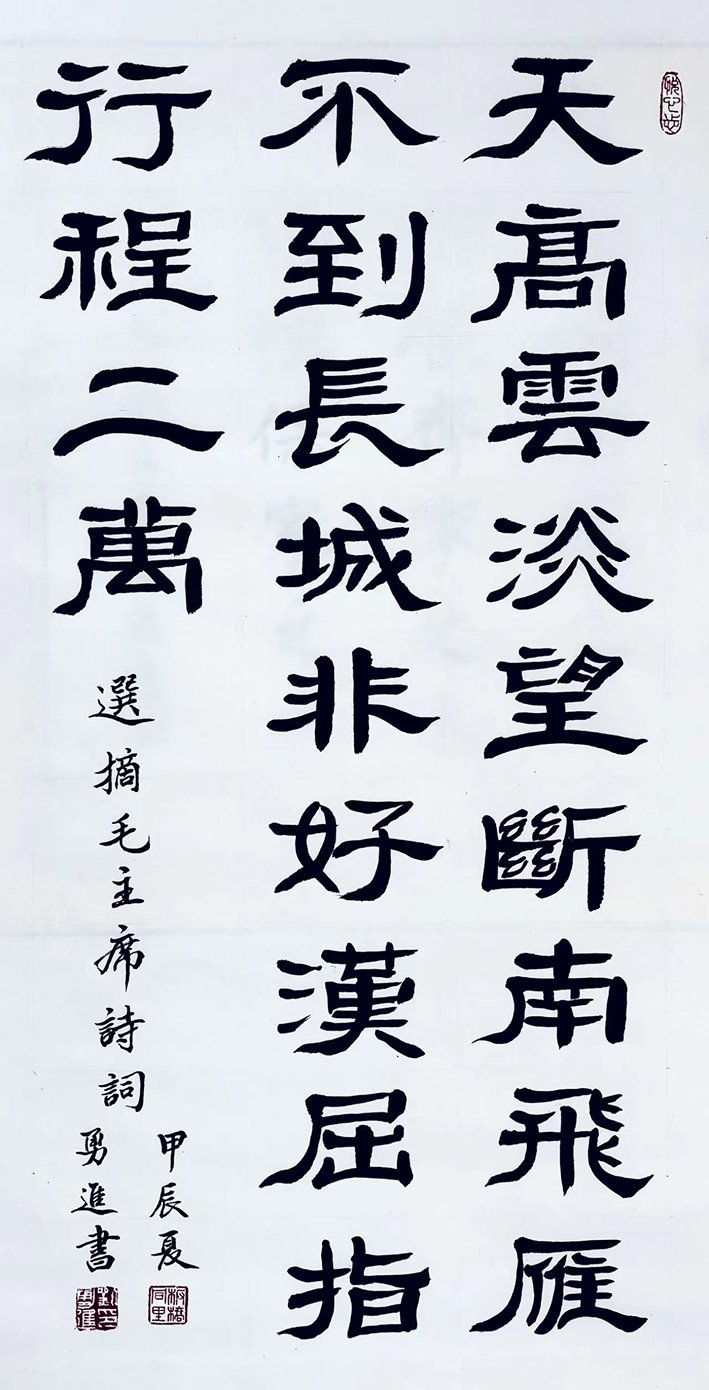 天高雲淡望斷南飛雁
不到長城非好漢屈指
行程二萬
選摘毛主席詩詞
甲辰夏
勇進書